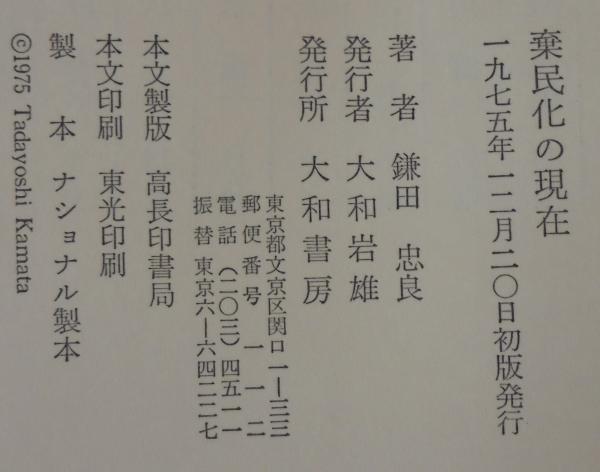 棄民化の現在
一九七五年一二月二〇日初版発行
著者 鎌田忠良
発行者 大和岩雄
発行所 大和書房
東京都文京区関口一—三三
郵便番号 一一二
電話(二〇三)四五一一
振替 東京六—六四二二七
本文製版 高長印書局
本文印刷 東光印刷
製本 ナショナル製本
©1975 Tadayoshi Kamata